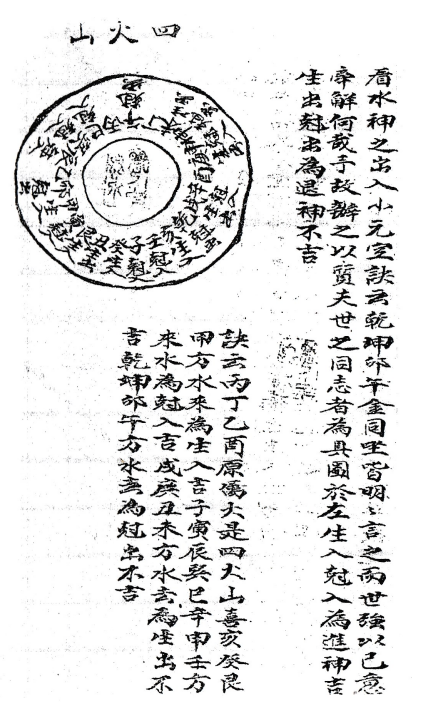 四火山
看水神之出入小元空訣云乾坤卯午金同坐皆明〻言之而世強以己意
穿解何哉予故辯之以質夫世之同志者為具圖於左生入尅入為進神吉
生出尅出為退神不吉
亥生入
壬尅入
子尅入
癸生入
丑生出
艮生入
寅尅入
訣云丙丁乙酉原屬火是四火山喜亥癸艮
甲方水來為生入吉子寅辰巽巳辛申壬方
來水為尅入吉戌庚丑未方水去為生出不
吉乾坤卯午方水去為尅出不吉